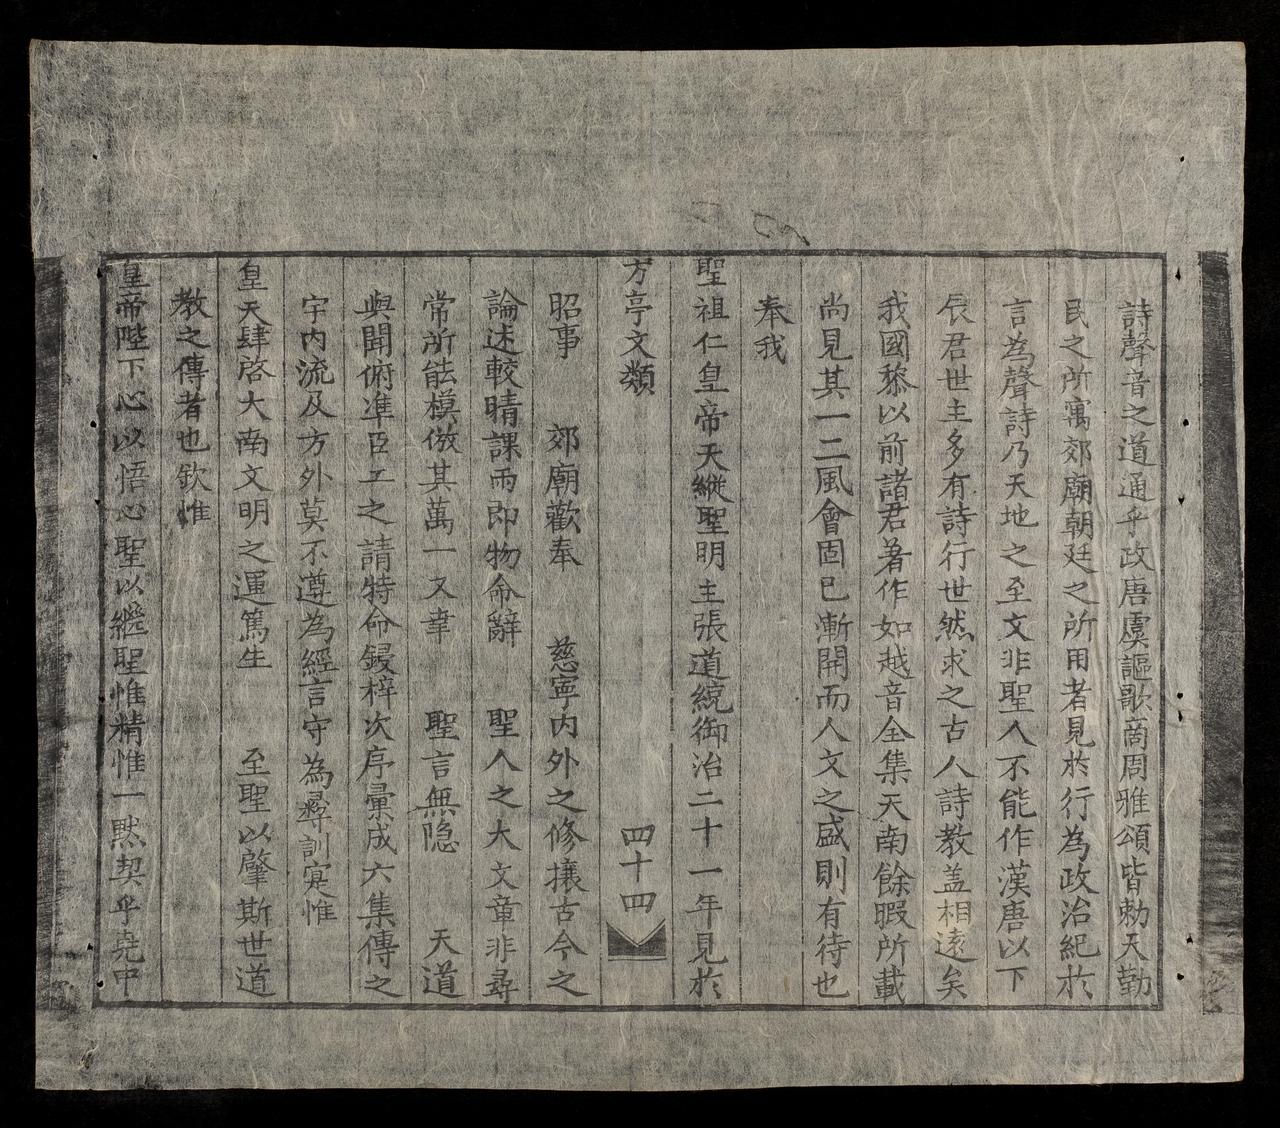 詩聲音之道通乎政唐虞謳歌商周雅頌皆勅天勤
民之所寓郊廟朝廷之所用者見於行為政治紀於
言為聲詩乃天地之至文非聖人不能作漢唐以下
辰君世主多有詩行世然求之古人詩教盖相逺矣
我國黎以前諸君著作如越音全集天南餘暇所載
尚見其一二風會固已漸開而人文之盛則有待也
奉我
聖祖仁皇帝天縱聖明主張道統御治二十一年見於
方亭文類 四十四
昭事 郊廟歡奉 慈寧内外之修攘古今之
論述較晴課雨即物命辭 聖人之大文章非尋
常所能模倣其萬一又幸 聖言無隐 天道
與聞俯準臣工之請特命鋟梓次序彙成六集傳之
宇内流及方外莫不遵為經言守為彝訓寔惟
皇天肆啓大南文明之運篤生 至聖以肇斯世道
教之傳者也欽惟
皇帝陛下心以悟心聖以繼聖惟精惟一黙契乎堯中